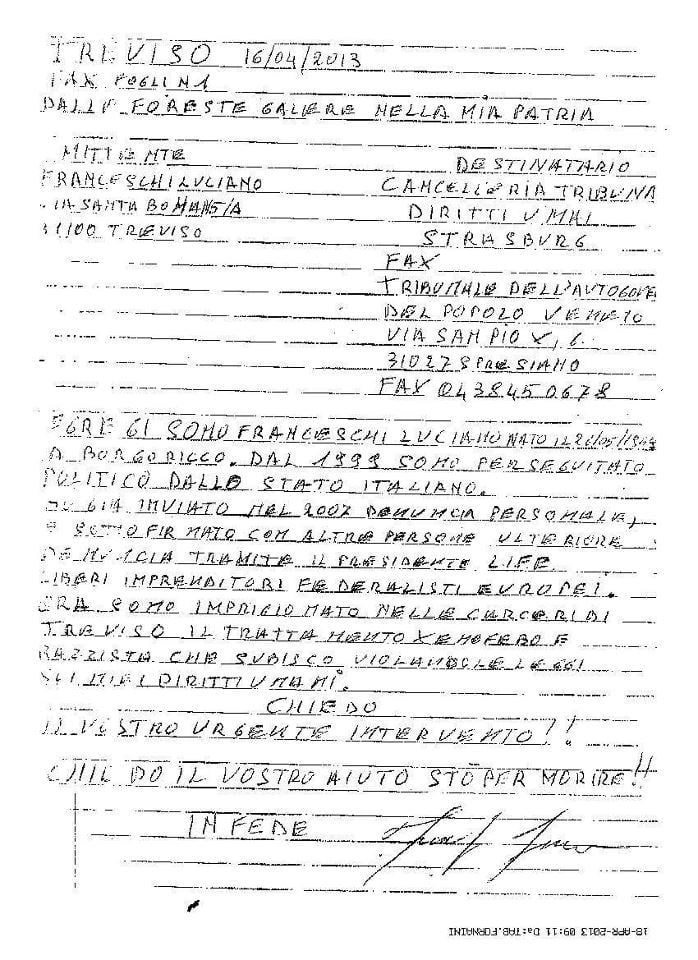 TREVISO 16/04/2013
FAX FOGLI N 1
DALLE FORESTE GALERE NELLA MIA PATRIA
MITTENTE
FRANCESCHI LUCIANO
VIA SANTA BONA N 5/A
31100 TREVISO
DESTINATARIO
CANCELLERIA TRIBUNA
DIRITTI UMANI
STRASBURG
FAX
TRIBUNALE DELL'AUTOGOVE
DEL POPOLO VENETO
VIA SAN PIO X, 6
31027 SPRESIANO
FAX 0438450678
EGRE GI SONO FRANCESCHI LUCIANO NATO IL
A BORGORICCO. DAL 1999 SONO PERSEGUITATO
POLITICO DALLO STATO ITALIANO.
HO GIA INVIATO NEL 2007 DENUNCIA PERSONALE,
E SOTTOFIRMATO CON ALTRE PERSONE ULTERIORE
DENUNCIA TRAMITE IL PRESIDENTE LIFE
LIBERI IMPRENDITORI FEDERALISTI EUROPEI.
ORA SONO IMPRIGIONATO NELLE CARCERI DI
TREVISO IL TRATTAMENTO XENOFEBO E
RAZZISTA CHE SUBISCO VIOLANDO LE LEGGI
SUI MIEI DIRITTI UMANI.
CHIEDO
IL VOSTRO URGENTE INTERVENTO!!
CHIEDO IL VOSTRO AIUTO STO PER MORIRE!!
IN FEDE
18-APR-2013 09:11 Da:TAB.FORNAINI